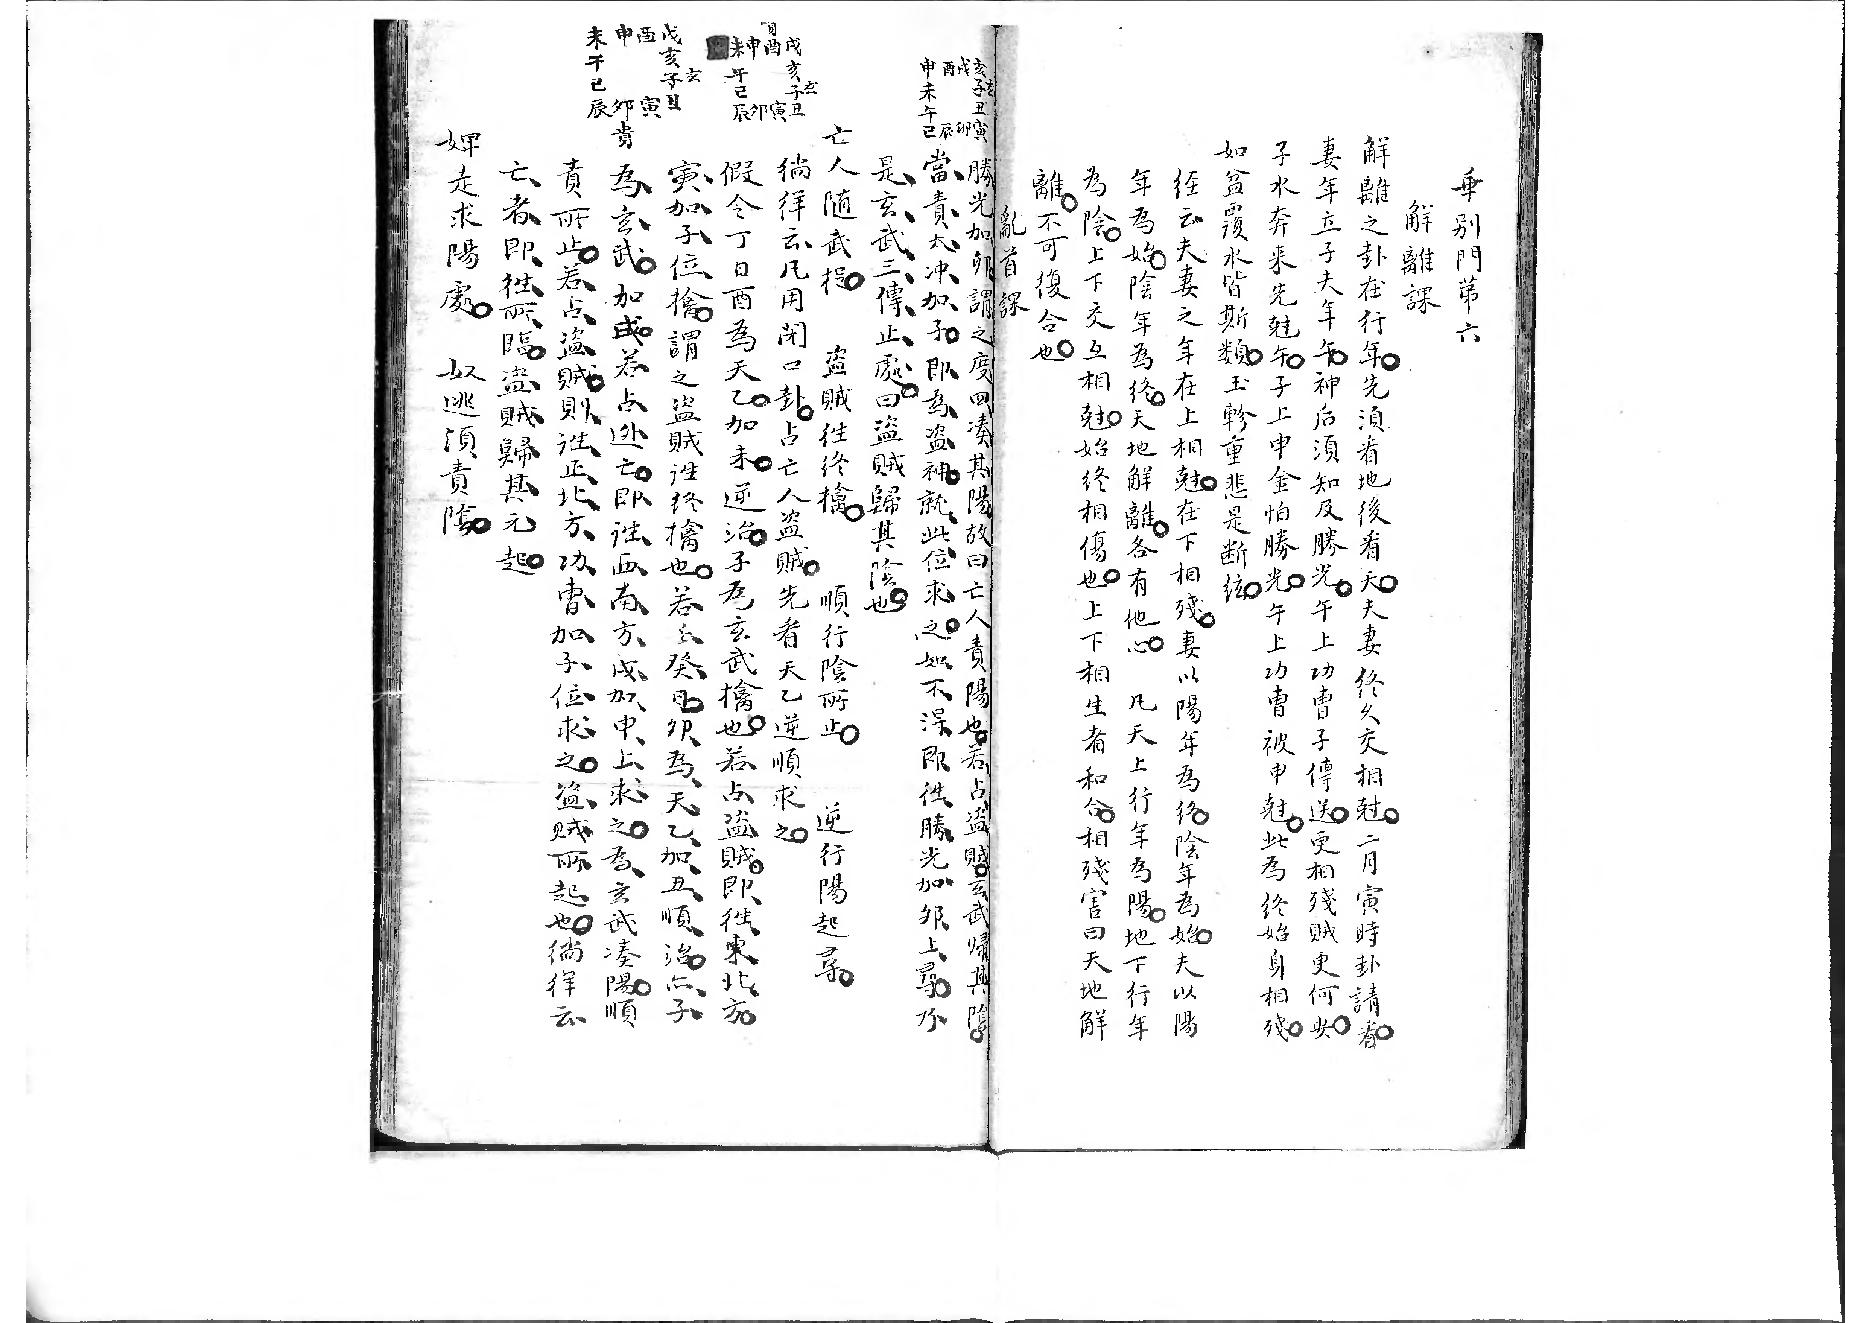 乖別門第六
解離課
解離之卦在行年先須看地後看天夫妻終久交相尅二月寅時卦請看
妻年立子夫年午神后須知及勝光午上功曹子傳送更相殘賊更何安
子水奔来先尅午子上申金怕勝光午上功曹被申尅此為終始身相殘
如盆覆水皆斯類玉軫重悲是断絃
経云夫妻之年在上相尅在下相殘妻以陽年為終陰年為始夫以陽
年為始陰年為終天地解離各有他心 凡天上行年為陽地下行年
為陰上下交互相尅始終相傷也上下相生者和合相殘害曰天地解
離不可復合也
亂首課
亥子丑寅
戌 玄 卯
酉 辰
申未午巳
勝光加卯謂之度四湊其陽故曰亡人責陽也若占盗賊玄武歸其陰
當責太冲加子即為盗神就此位求之如不淂即徃勝光加卯上尋乃
是玄武三傳止處曰盗賊歸其陰也
亡人随武捉 盗賊徃終擒 順行陰所止 逆行陽起尋
戌亥子丑
酉 玄 寅
申 卯
未午巳辰
徜徉云凡用閉口卦占亡人盗賊先看天乙逆順求之
假令丁日酉為天乙加未逆治子為玄武擒也若占盗賊即徃東北方
寅加子位擒謂之盗賊徃終擒也若占癸日卯為天乙加丑順治亦子
戌亥子丑
酉 玄 寅
申 卯 貴
未午巳辰
為玄武加戌若占逃亡即徃西南方戌加申上求之為玄武湊陽順
責所止若占盗賊則徃正北方功曹加子位求之盗賊所起也徜徉云
亡者即徃所臨盗賊歸其元起
婢走求陽處 奴逃須責陰